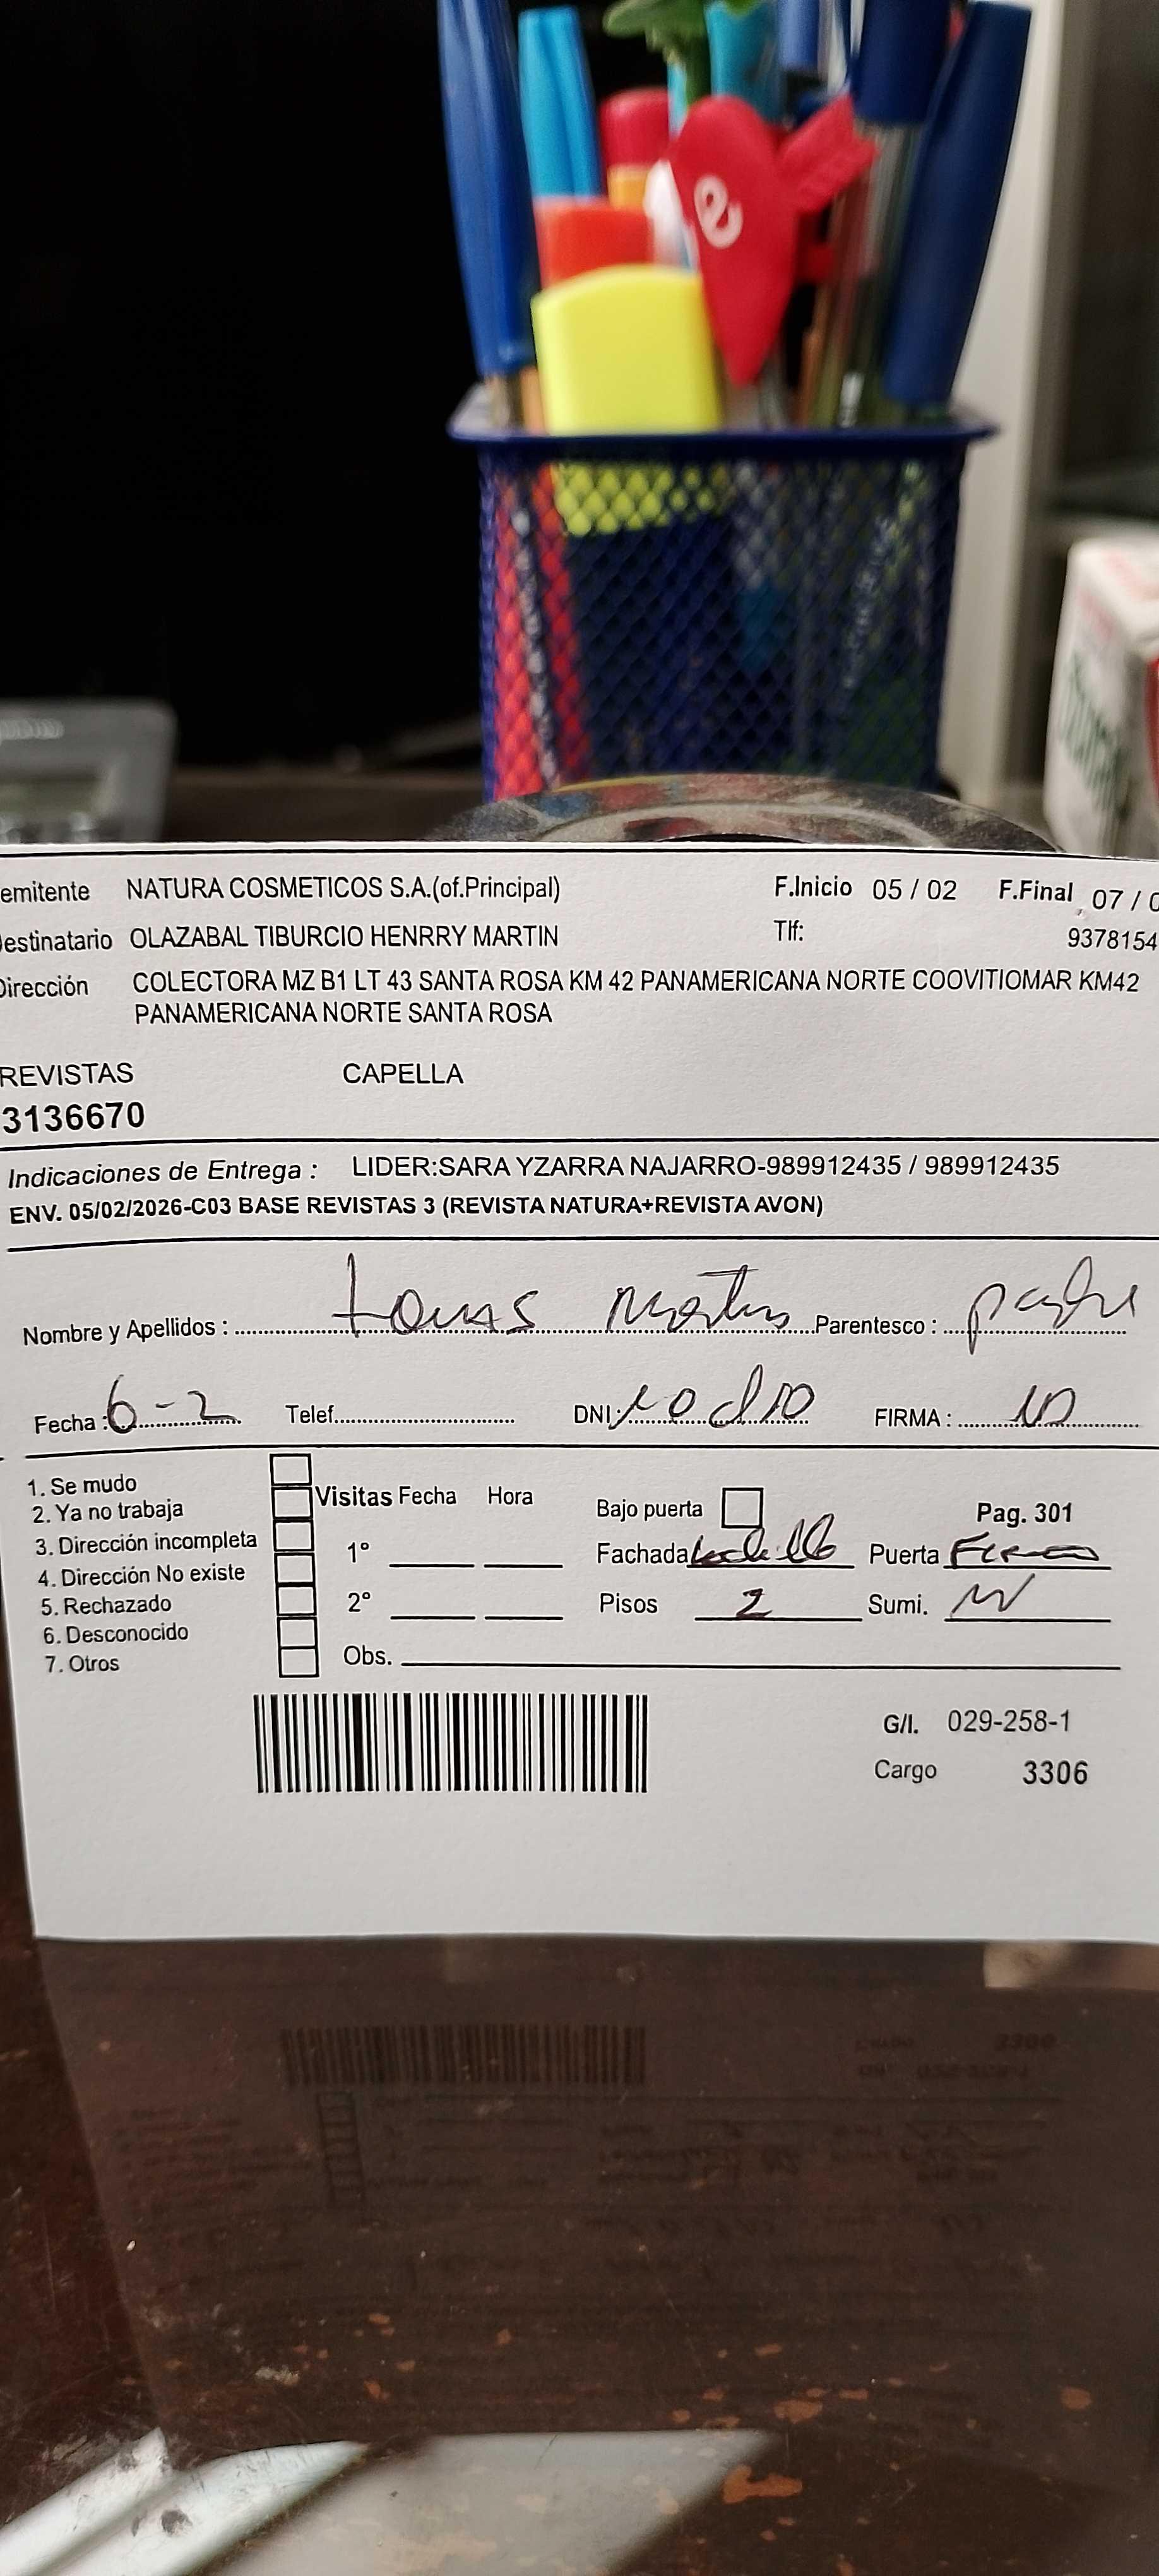 emitente NATURA COSMETICOS S.A.(of.Principal) F.Inicio 05 / 02 F.Final 07 / 0
Destinatario OLAZABAL TIBURCIO HENRRY MARTIN Tlf: 9378154
Dirección COLECTORA MZ B1 LT 43 SANTA ROSA KM 42 PANAMERICANA NORTE COOVITIOMAR KM42
PANAMERICANA NORTE SANTA ROSA
REVISTAS CAPELLA
3136670
Indicaciones de Entrega : LIDER:SARA YZARRA NAJARRO-989912435 / 989912435
ENV. 05/02/2026-C03 BASE REVISTAS 3 (REVISTA NATURA+REVISTA AVON)
Nombre y Apellidos : Parentesco : padre
Fecha : 6-2 Telef. DNI : no dio FIRMA :
1. Se mudo
2. Ya no trabaja Visitas Fecha Hora Bajo puerta Pag. 301
3. Dirección incompleta
4. Dirección No existe 1° Fachada ladrillo Puerta Fierro
5. Rechazado 2° Pisos 2 Sumi.
6. Desconocido
7. Otros Obs.
G/I. 029-258-1
Cargo 3306